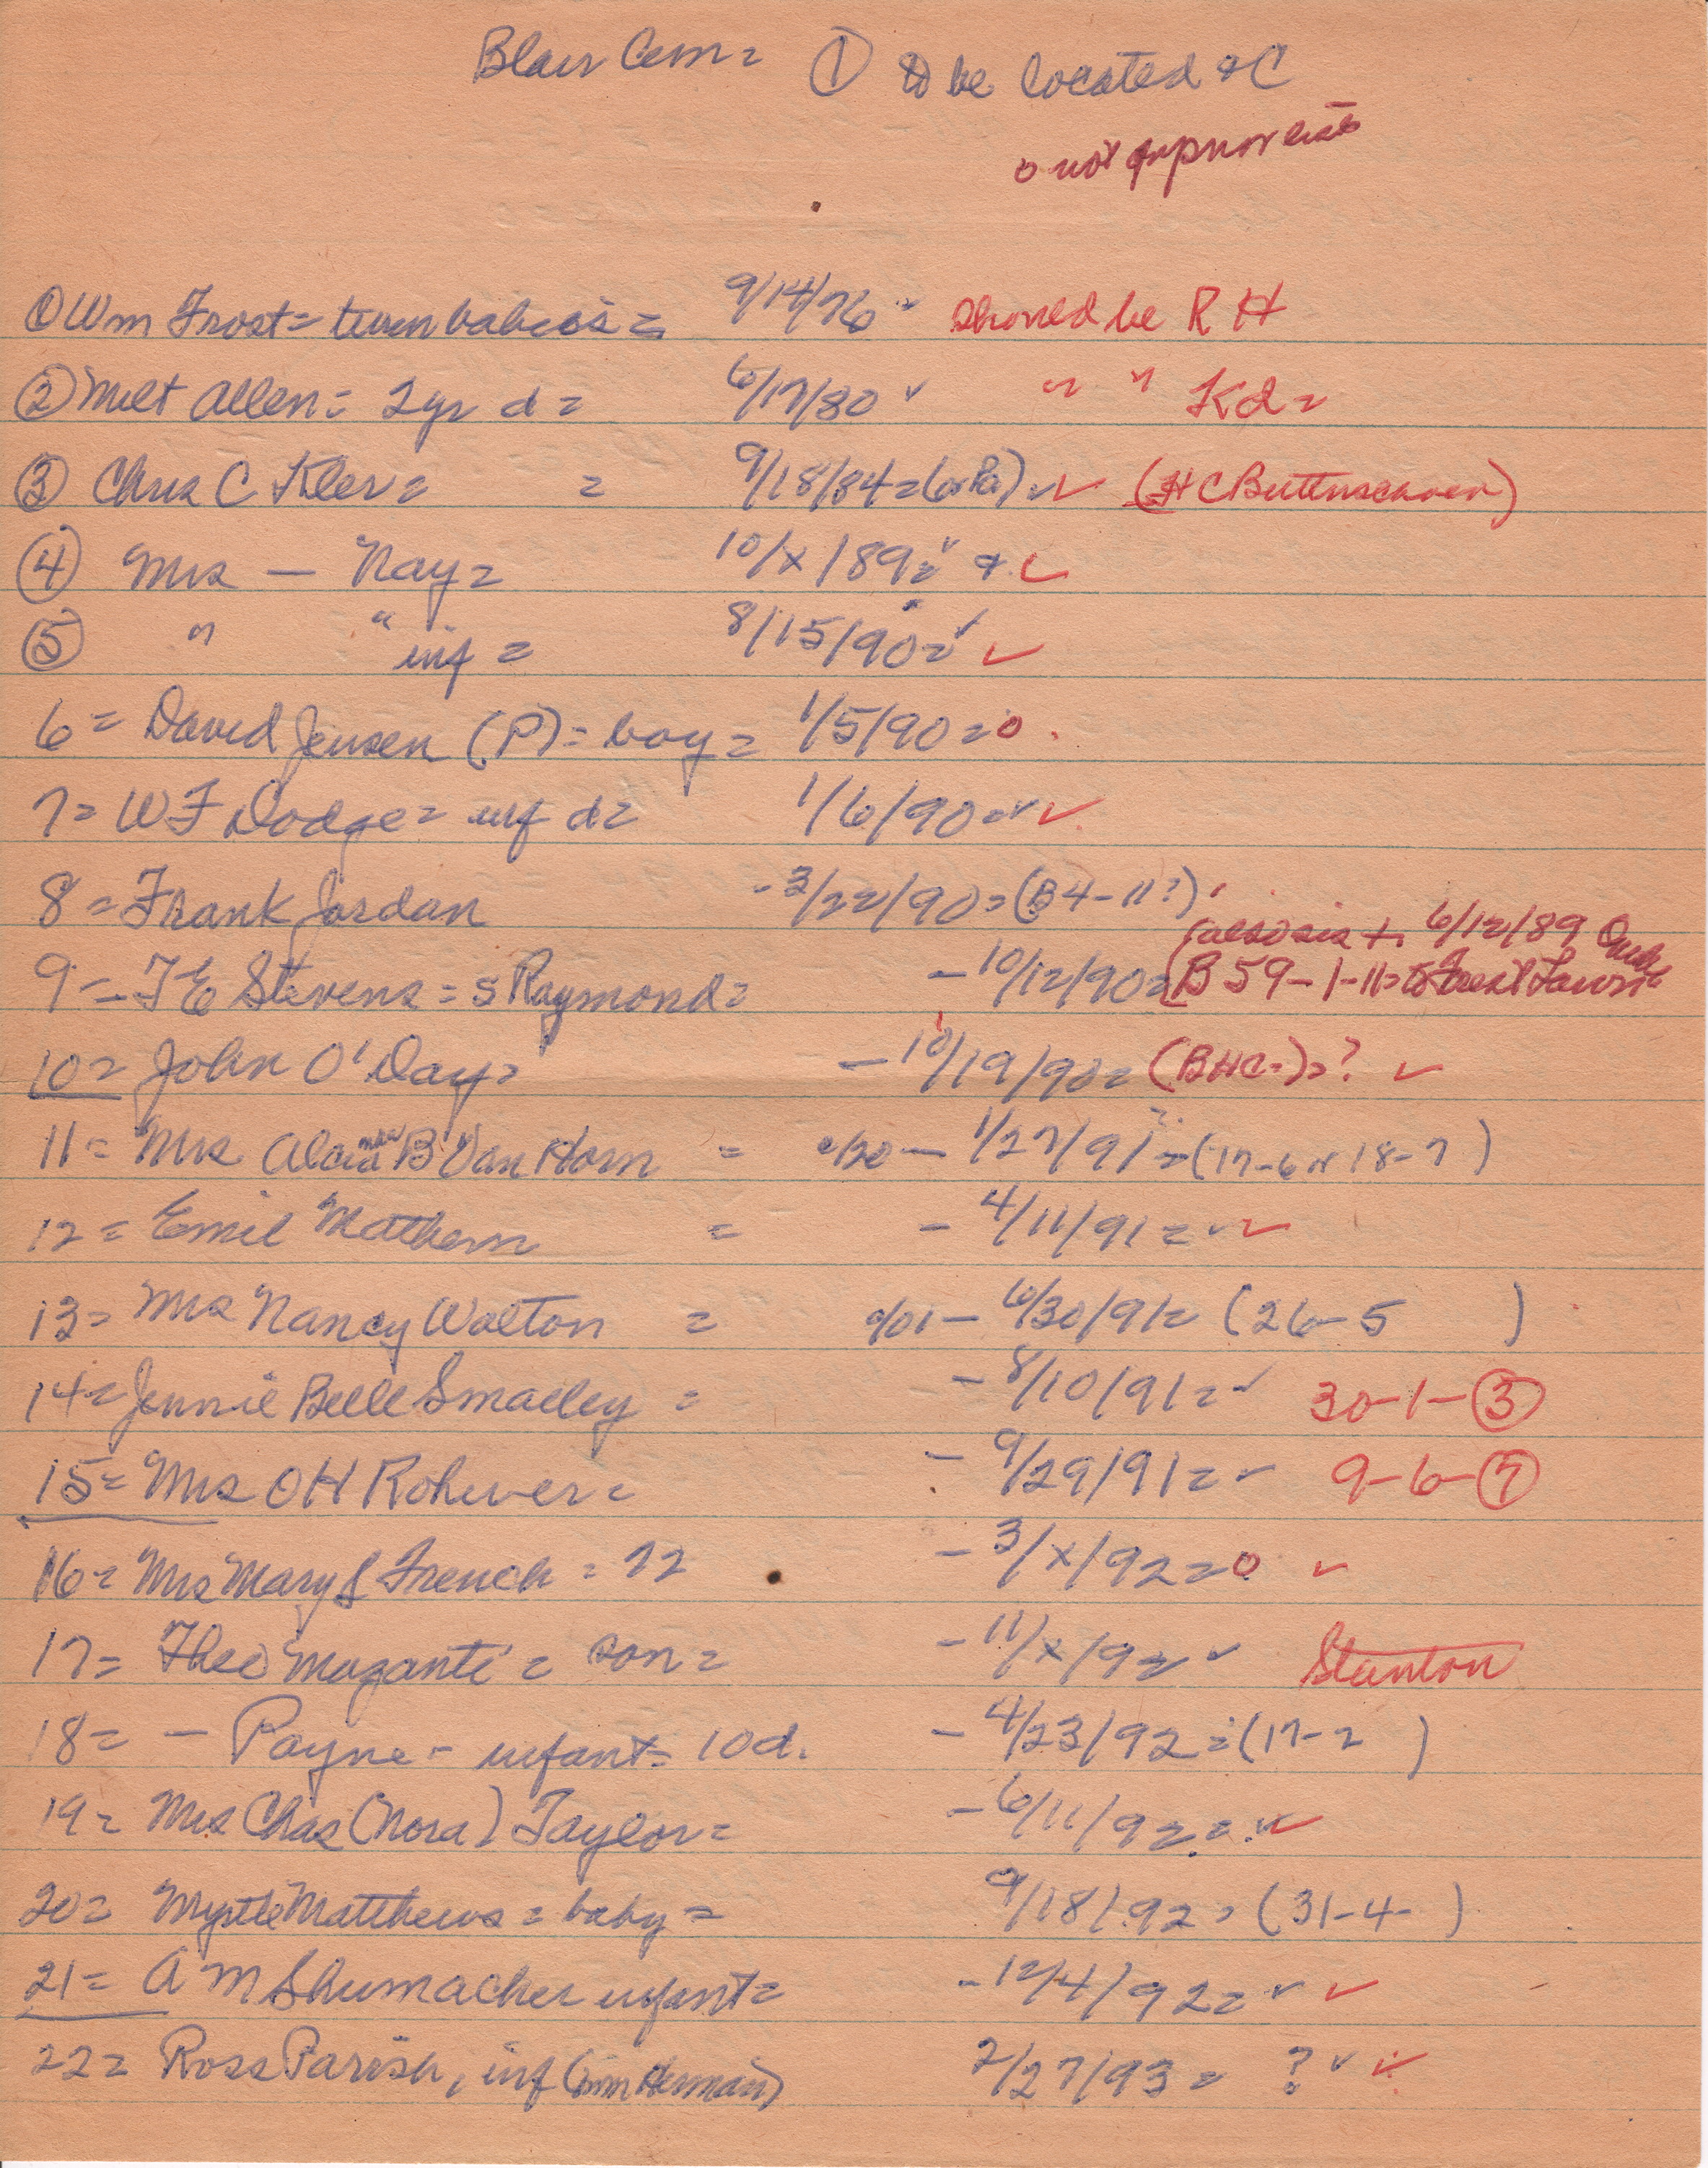 Blair Cem = ① to be located + C
o not on prior list
① Wm Frost = twin babies = 9/14/76 should be R H
② Milt Allen = 2 yr d = 6/17/80 ✓ " " Kd =
③ Chris C Kler = = 9/18/84 = (or Pa) ✓ ✓ (H C Buttnschoen)
④ Mrs — Nay = 10/x/89 = ✓ + ✓
⑤ " " inf = 8/15/90 = ✓ ✓
6 = David Jensen (P) = boy = 1/5/90 = o
7 = W F Dodge = inf d = 1/6/90 = ✓ ✓
8 = Frank Jordan - 3/22/90 = (B 4 - 11 ?)
(also sis 6/12/89
9 = F E Stevens = s Raymond = - 10/12/90 = (B 59 - 1 - 11 = to Forest Lawn
10 = John O'Day = - 10/19/90 = (B H C -) = ? ✓
11 = Mrs B Van Horn = - 1/27/91 = (17-6 or 18-7 )
12 = Emil Mathern = - 4/11/91 = ✓ ✓
13 = Mrs Nancy Walton = - 6/30/91 = (26-5 )
14 = Jennie Belle Smalley = - 8/10/91 = ✓ 30-1-③
15 = Mrs O H Rohwer = - 9/29/91 = ✓ 9-6-⑦
16 = Mrs Mary S French = 72 - 3/x/92 = o ✓
17 = Theo Mazanti = son = - 11/x/92 ✓ Stanton
18 = - Payne - infant = 10 d. - 4/23/92 = (17-2 )
19 = Mrs Chas (Nora) Taylor = - 6/11/92 = ✓ ✓
20 = Myrtle Matthews = baby = 9/18/92 = (31-4- )
21 = A M Shumacher infant = - 12/4/92 = ✓ ✓
22 = Ross Parish, inf (mm Herman) 2/27/93 = ? ✓ ✓